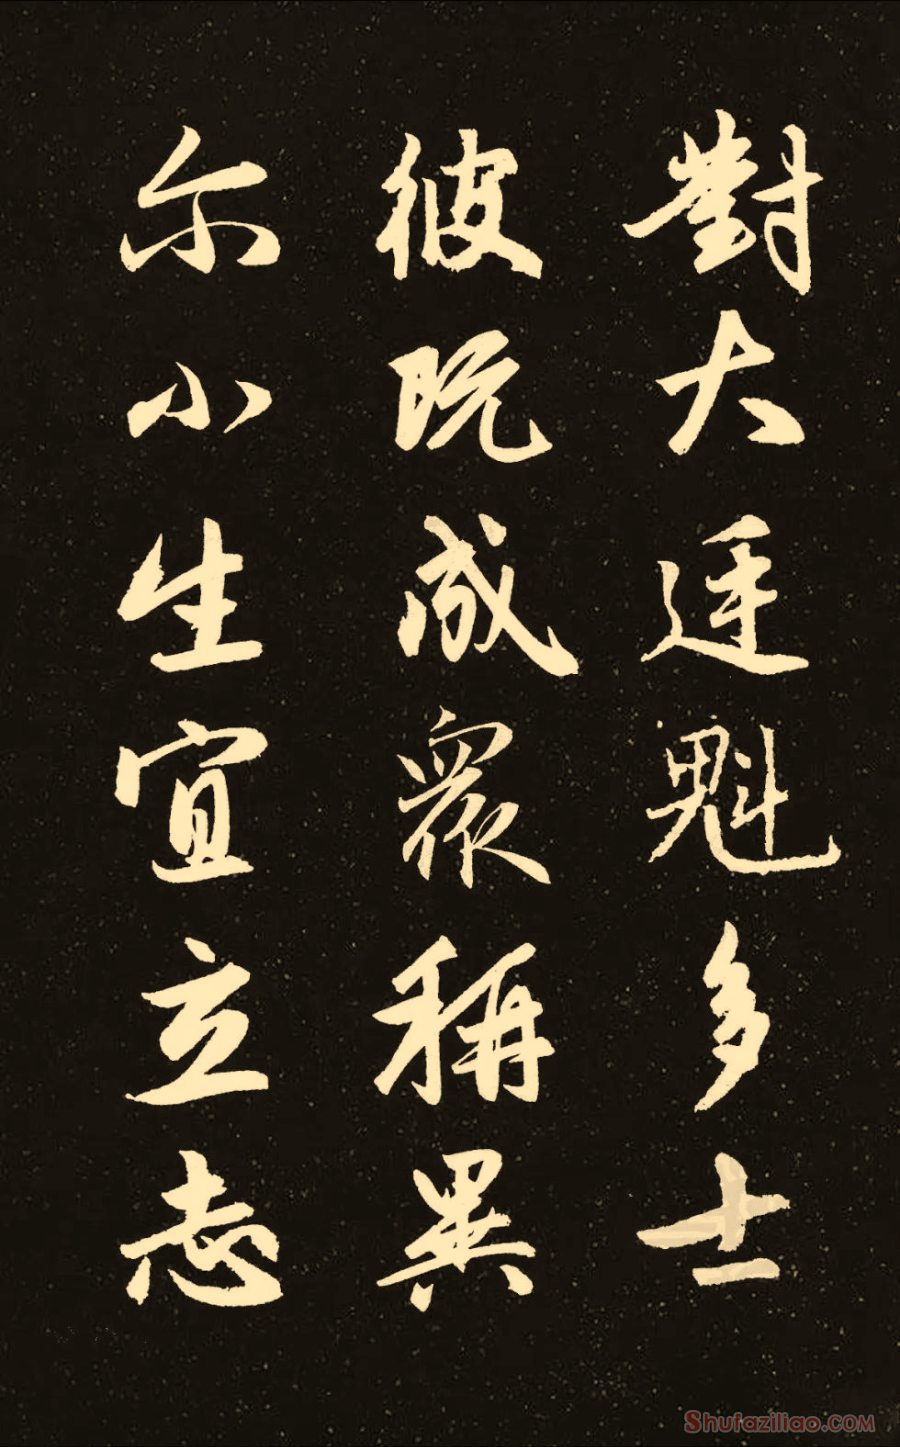 對大廷魁多士
彼既成眾稱異
尔小生宜立志
Shufaziliao.com